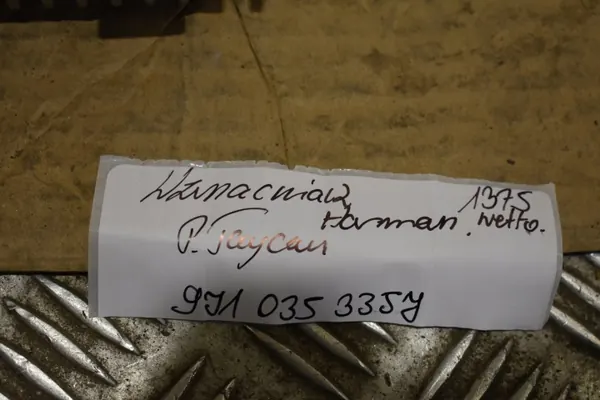 Wzmacniacz 1375
Harman. netto.
P. Taycan
9J1 035 335J